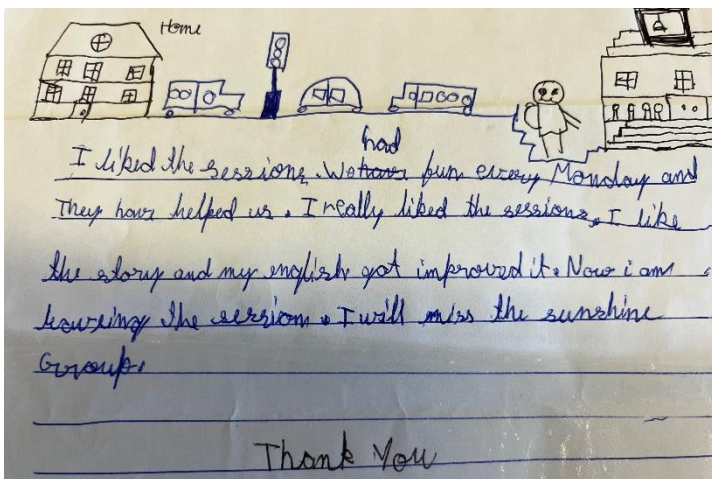 Home
had
I liked the sessions. We have fun every Monday and
They have helped us. I really liked the sessions. I like
the story and my english got improved it. Now i am
leaveing the session. I will miss the sunshine
Group.
Thank You